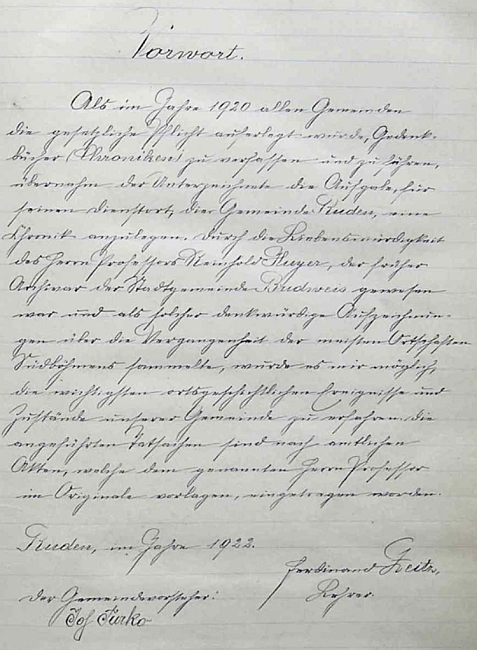 Vorwort.
Als im Jahre 1920 allen Gemeinden
die gesetzliche Pflicht auferlegt wurde, Gedenk-
bücher (Chroniken) zu verfassen und zu führen,
übernahm der Unterzeichnete die Aufgabe, für
seinen Dienstort, die Gemeinde Ruden, eine
Chronik anzulegen. Durch die Liebenswürdigkeit
des Herrn Professors Reinhold Huyer, der früher
Archivar der Stadtgemeinde Budweis gewesen
war und als solcher denkwürdige Aufzeichnun-
gen über die Vergangenheit der meisten Ortschaften
Südböhmens sammelte, wurde es mir möglich,
die wichtigsten ortsgeschichtlichen Ereignisse und
Zustände unserer Gemeinde zu erfahren. Die
angeführten Tatsachen sind nach amtlichen
Akten, welche dem genannten Herrn Professor
im Originale vorlagen, eingetragen worden.
Ruden, im Jahre 1922.
Ferdinand
Lehrer.
Der Gemeindevorsteher:
Joh Turko